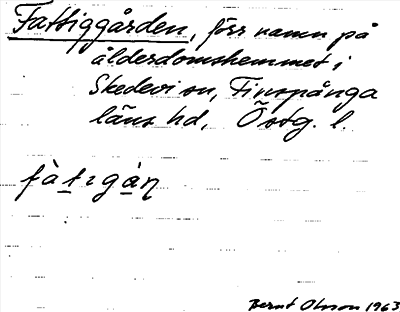 Fattiggården, förr namn på
ålderdomshemmet i
Skedevi sn, Finspånga
läns hd, Östg. l.
fàtɩgàn̥
Bernt Olsson 1963